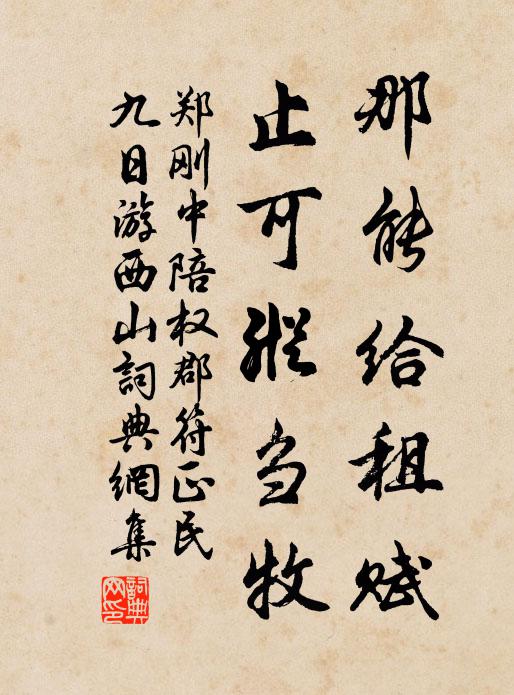 那能给租赋
止可纵刍牧
郑刚中陪权郡符正民
九日游西山词典網集
詞典網印